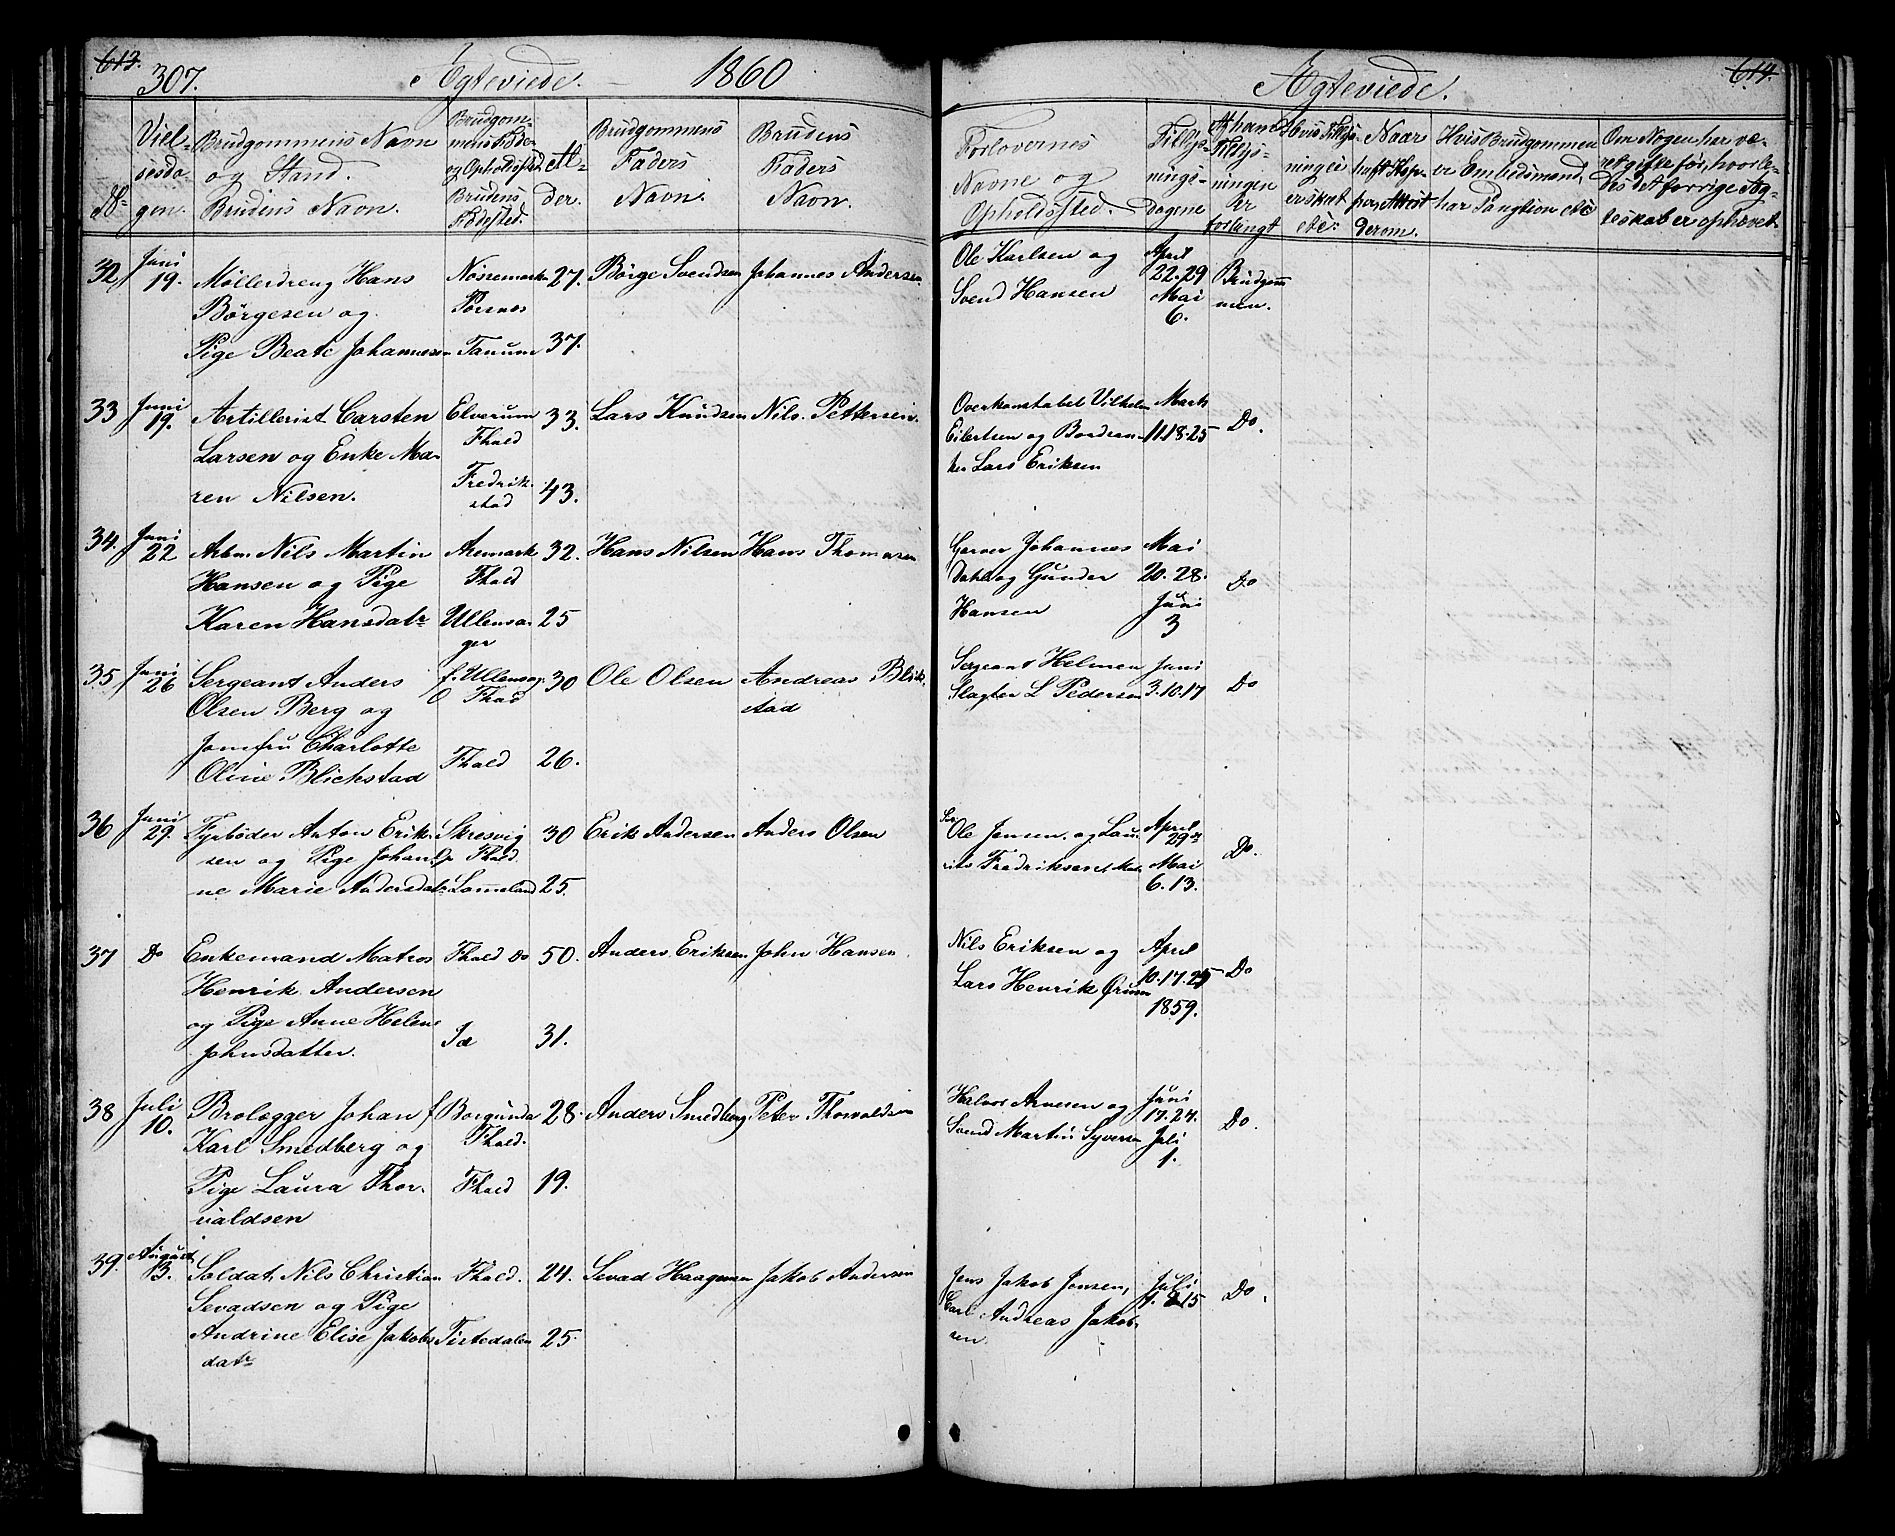 613.
307. Ægteviede. 1860 Ægteviede. 614.
No
Vielsesdagen.
Brudgommens Navn og Stand.
Brudens Navn.
Brudgommens Føde- og Opholdssted
Brudens Fødested.
Alder.
Brudgommens Faders Navn.
Brudens Faders Navn.
Forlovernes Navne og Opholdssted.
Tillysningsdagene
Af hvem Tillysningen er forlangt
Hvis Tillysningen er skeet etc:
Naar haft Kopper, Attest derom.
Hvis Brudgommen er Embedsmand, har Sangtion etc
Om Nogen har været gifte før, hvorledes det forrige Ægteskab er ophævet
32 Juni 19. Møllerdreng Hans Nössemark 27. Börge Svendsen Johannes Andersen Ole Karlsen og April
Börgesen og Svend Hansen 22.29 Brudgommen.
Mai 6.
Pige Beate Johannesen Tanum 37.
33 Juni 19. Artillerist Carsten Elverum 33. Lars Knudsen Nils Pettersen. Overkonstabel Vilhelm Marts
Larsen og Enke Ma- Fhald Eilertsen og 11.18.25 Do.
ren Nilsen. Fredrikstad 43. Lars Eriksen
34. Juni 22 Arbm. Nils Martin Aremark 32. Hans Nilsen Hans Thomesen Garver Johannes Mai
Hansen og Pige Fhald Dahl og Gunder 20.28. Do
Karen Hansdatr Ullensager 25 Hansen Juni 3
35 Juni 26 Sergeant Anders f. Ullensag. 30 Ole Olsen Andreas Blik- Sergeant Helmen Juni
Olsen Berg og O Fhald stad Slagter L Pedersen 3.10.17 Do
Jomfru Charlotte Fhald 26.
Oline Blichstad
36 Juni 29. Fyrbøder Anton Erik- Skresvig 30 Erik Andersen Anders Olsen Ole Jensen og Lau- April 29
sen og Pige Johan- Op Fhald. rits Fredriksen Mai Do.
ne Marie Andersdatr 25. 6.13.
37 Do Enkemand Matros Fhald Do 50. Anders Eriksen John Hansen. Nils Eriksen og April
Henrik Andersen Lars Henrik Ørum 10.17.25 Do
og Pige Anne Helene Id 31. 1859.
Johnsdatter.
38 Juli 10. Brolægger Johan f Borgunda 28. Anders Smedberg Peter Thorvaldsen Halvor Arnesen og Juni
Karl Smedberg og Fhald. Svend Martin Syversen 17.24. Do.
Pige Laura Thor- Fhald 19. Juli 1.
valdsen
39. August 13. Soldat Nils Christian Fhald. 24. Sevad Haagensen Jakob Andersen Jens Jakob Jensen, Juli
Sevadsen og Pige Carl Andreas Jakob- 1. 15 Do.
Andrine Elise Jakobs- Tistedalen 25. sen.
datr